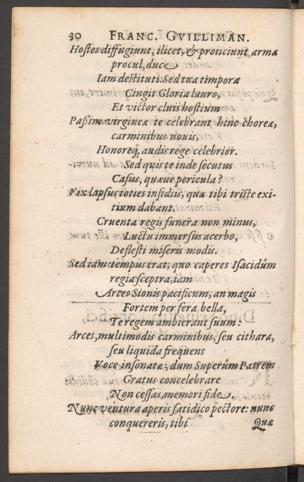 30 FRANC. GVILLIMAN.
Hostes diffugiunt, ilicet, & proiiciunt arma
procul, duce
Iam destituti. Sed tua tempora
Cingit Gloria lauro,
Et victor cluis hostium
Passim virgineæ te celebrant hinc choreæ,
carminibus nouis,
Honoreq́, audis rege celebrior.
Sed quis te inde secutus
Casus, quæue pericula?
Vix lapsus toties insidiis, quæ tibi triste exi-
tium dabant,
Cruenta regis funera non minus,
Luctu immersus acerbo,
Deflesti miseris modis.
Sed iam tempus erat, quo caperes Isacidûm
regia sceptra, iam
Arces Sionis pacificum, an magis
Fortem per fera bella,
Te regem ambierant suum.
Arces, multimodis carminibus, seu cithara,
seu liquida frequens
Voce insonate; dum Superûm Patrem
Gratus concelebrare
Non cessas, memori fide.
Nunc ventura aperis fatidico pectore: nunc
conquereris, tibi Quæ